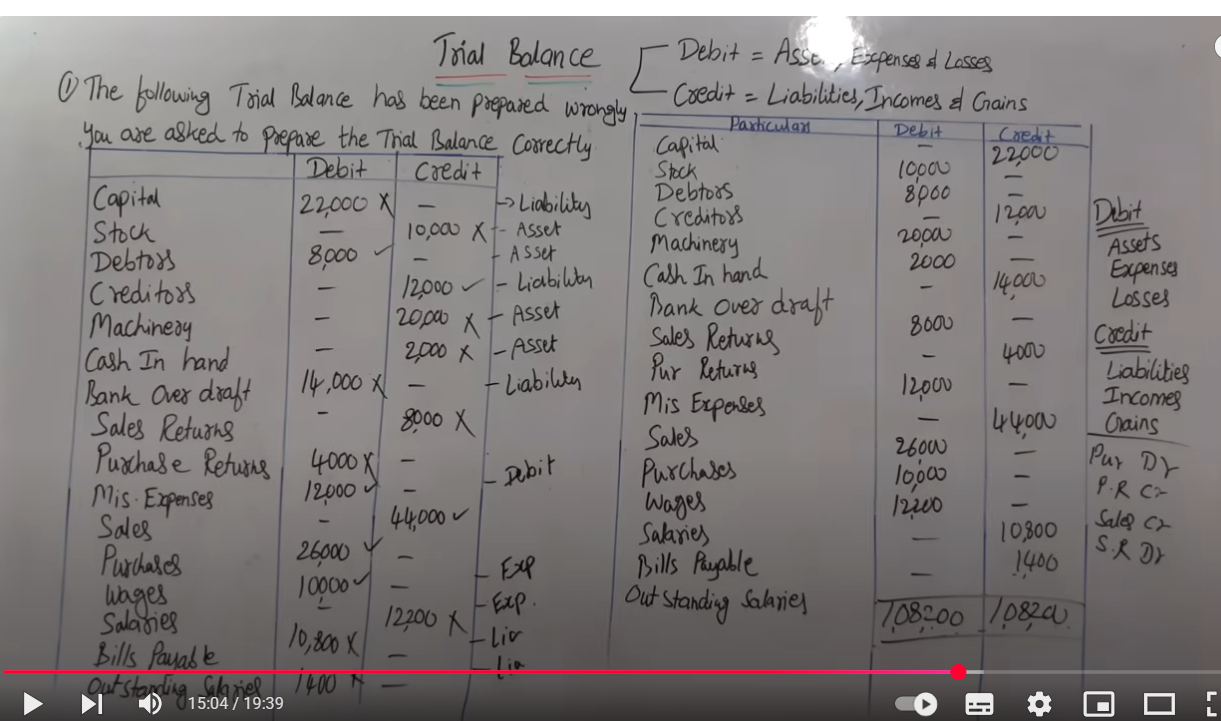 Trial Balance
Debit = Expenses & Losses
Credit = Liabilities, Incomes & Gains
① The following Trial Balance has been prepared wrongly,
You are asked to prepare the Trial Balance Correctly
Debit Credit
Capital 22,000 X — -> Liability
Stock — 10,000 X - Asset
Debtors 8,000 ✓ — - Asset
Creditors — 12,000 ✓ - Liability
Machinery — 20,000 X - Asset
Cash In hand — 2,000 X - Asset
Bank Over draft 14,000 X — - Liability
Sales Returns - 8000 X
Purchase Returns 4000 X — - Debit
Mis. Expenses 12000 ✓ -
Sales - 44,000 ✓
Purchases 26000 ✓ -
Wages 10000 ✓ - - Exp
Salaries - 12200 X - Exp.
Bills Payable 10,800 X — - Lia
Outstanding Salaries 1400 X — - Lia
Particulars Debit Credit
Capital — 22,000
Stock 10,000 —
Debtors 8,000 —
Creditors — 12,000
Machinery 20,000 —
Cash In hand 2000 —
Bank Over draft - 14,000
Sales Returns 8000 —
Pur Returns - 4000
Mis Expenses 12,000 —
Sales — 44,000
Purchases 26000 —
Wages 10,000 -
Salaries 12200 —
Bills Payable — 10,800
Out Standing Salaries — 1,400
1,08,200 1,08,200
Debit
Assets
Expenses
Losses
Credit
Liabilities
Incomes
Gains
Pur Dr
P.R Cr
Sales Cr
S.R Dr
15:04 / 19:39